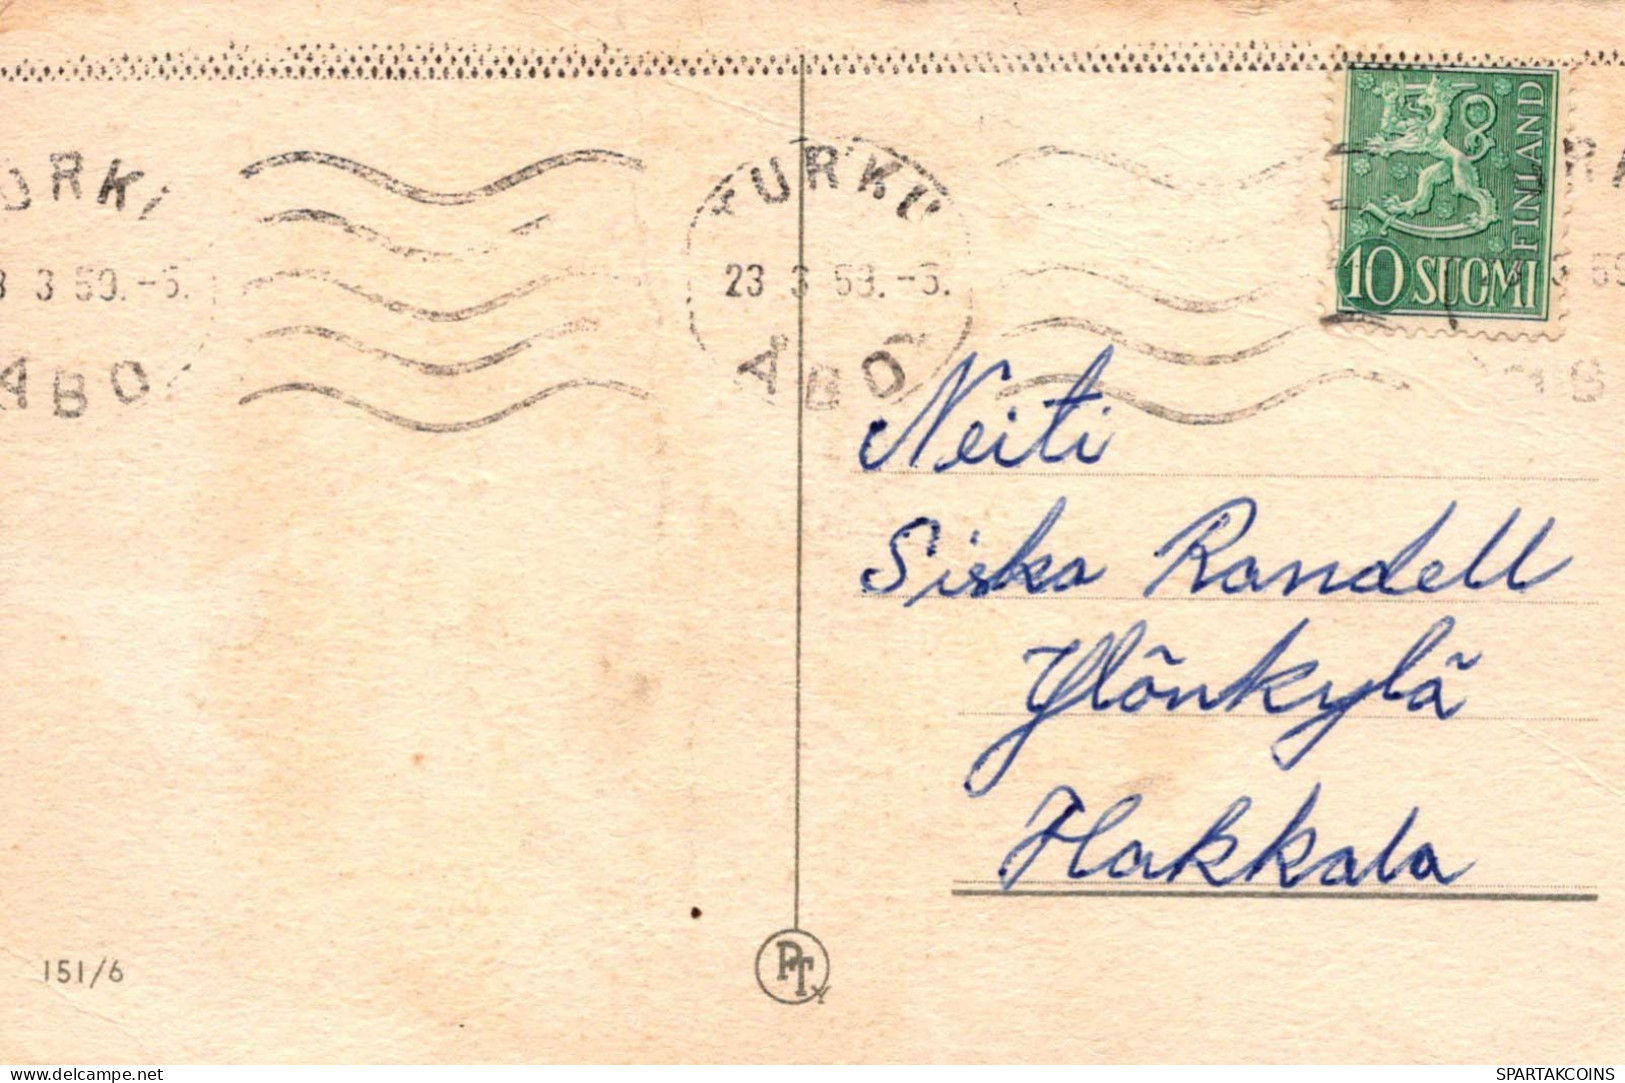 TURKU
23 3 59.-5.
ÅBO
FINLAND
10 SUOMI
Neiti
Siska Randell
Ylönkylä
Hakkala
151/6
PTY
delcampe.net
SPARTAKCOINS